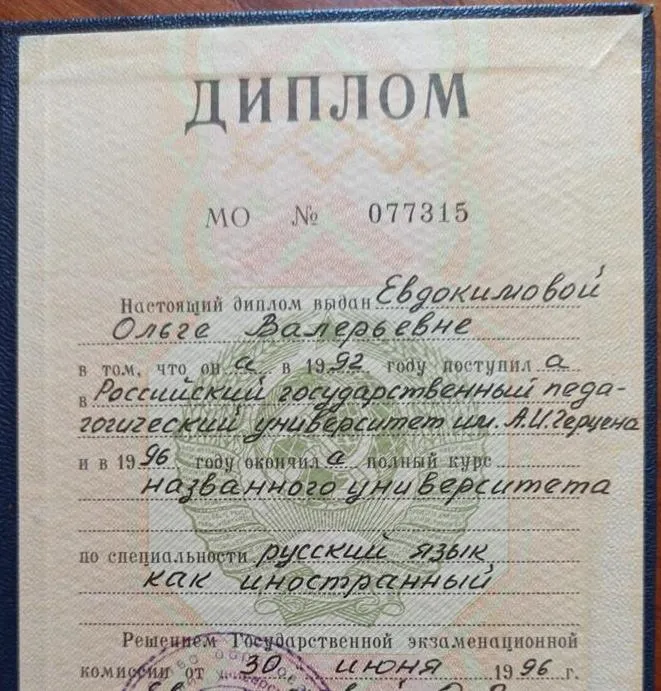 ДИПЛОМ
МО № 077315
Настоящий диплом выдан Евдокимовой
Ольге Валерьевне
в том, что он а в 1992 году поступил а
в Российский государственный педа-
гогический университет им. А.И.Герцена
и в 1996 году окончил а полный курс
названного университета
по специальности русский язык
как иностранный
Решением Государственной экзаменационной
комиссии от 30 июня 1996 г.